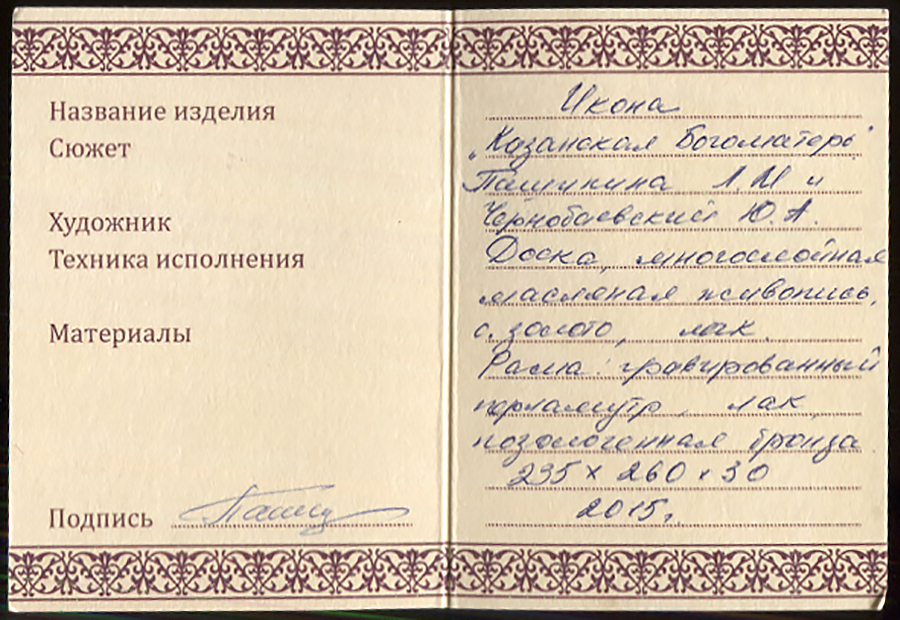 Название изделия
Сюжет
Художник
Техника исполнения
Материалы
Подпись
Икона
„Казанская Богоматерь"
Пашинина Л.И и
Чернобаевский Ю.А.
Доска, многослойная
масляная живопись,
с. золото, лак.
Рама: гравированный
перламутр, лак,
позолоченная бронза.
235 x 260 x 30
2015г.